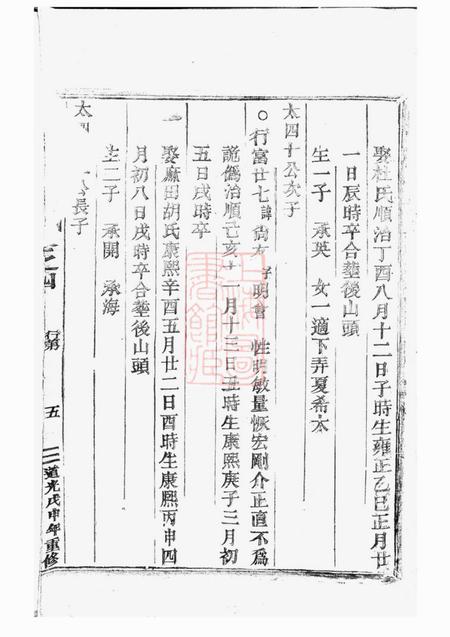 娶杜氏順治丁酉八月十二日子時生雍正乙巳正月廿
一日辰時卒合塟後山頭
生一子 承英 女一適下弄夏希太
太四十公次子
○行富廿七諱尚 字明會 性明敏量恢宏剛介正直不爲
詭僞治順己亥十一月十三日丑時生康熙庚子三月初
五日戌時卒
娶麻田胡氏康熙辛酉五月廿二日酉時生康熙丙申四
月初八日戌時卒合塟後山頭
生二子 承開 承海
太四 長子
卷之四 行第 五 道光戊申年重修
上海圖書館藏